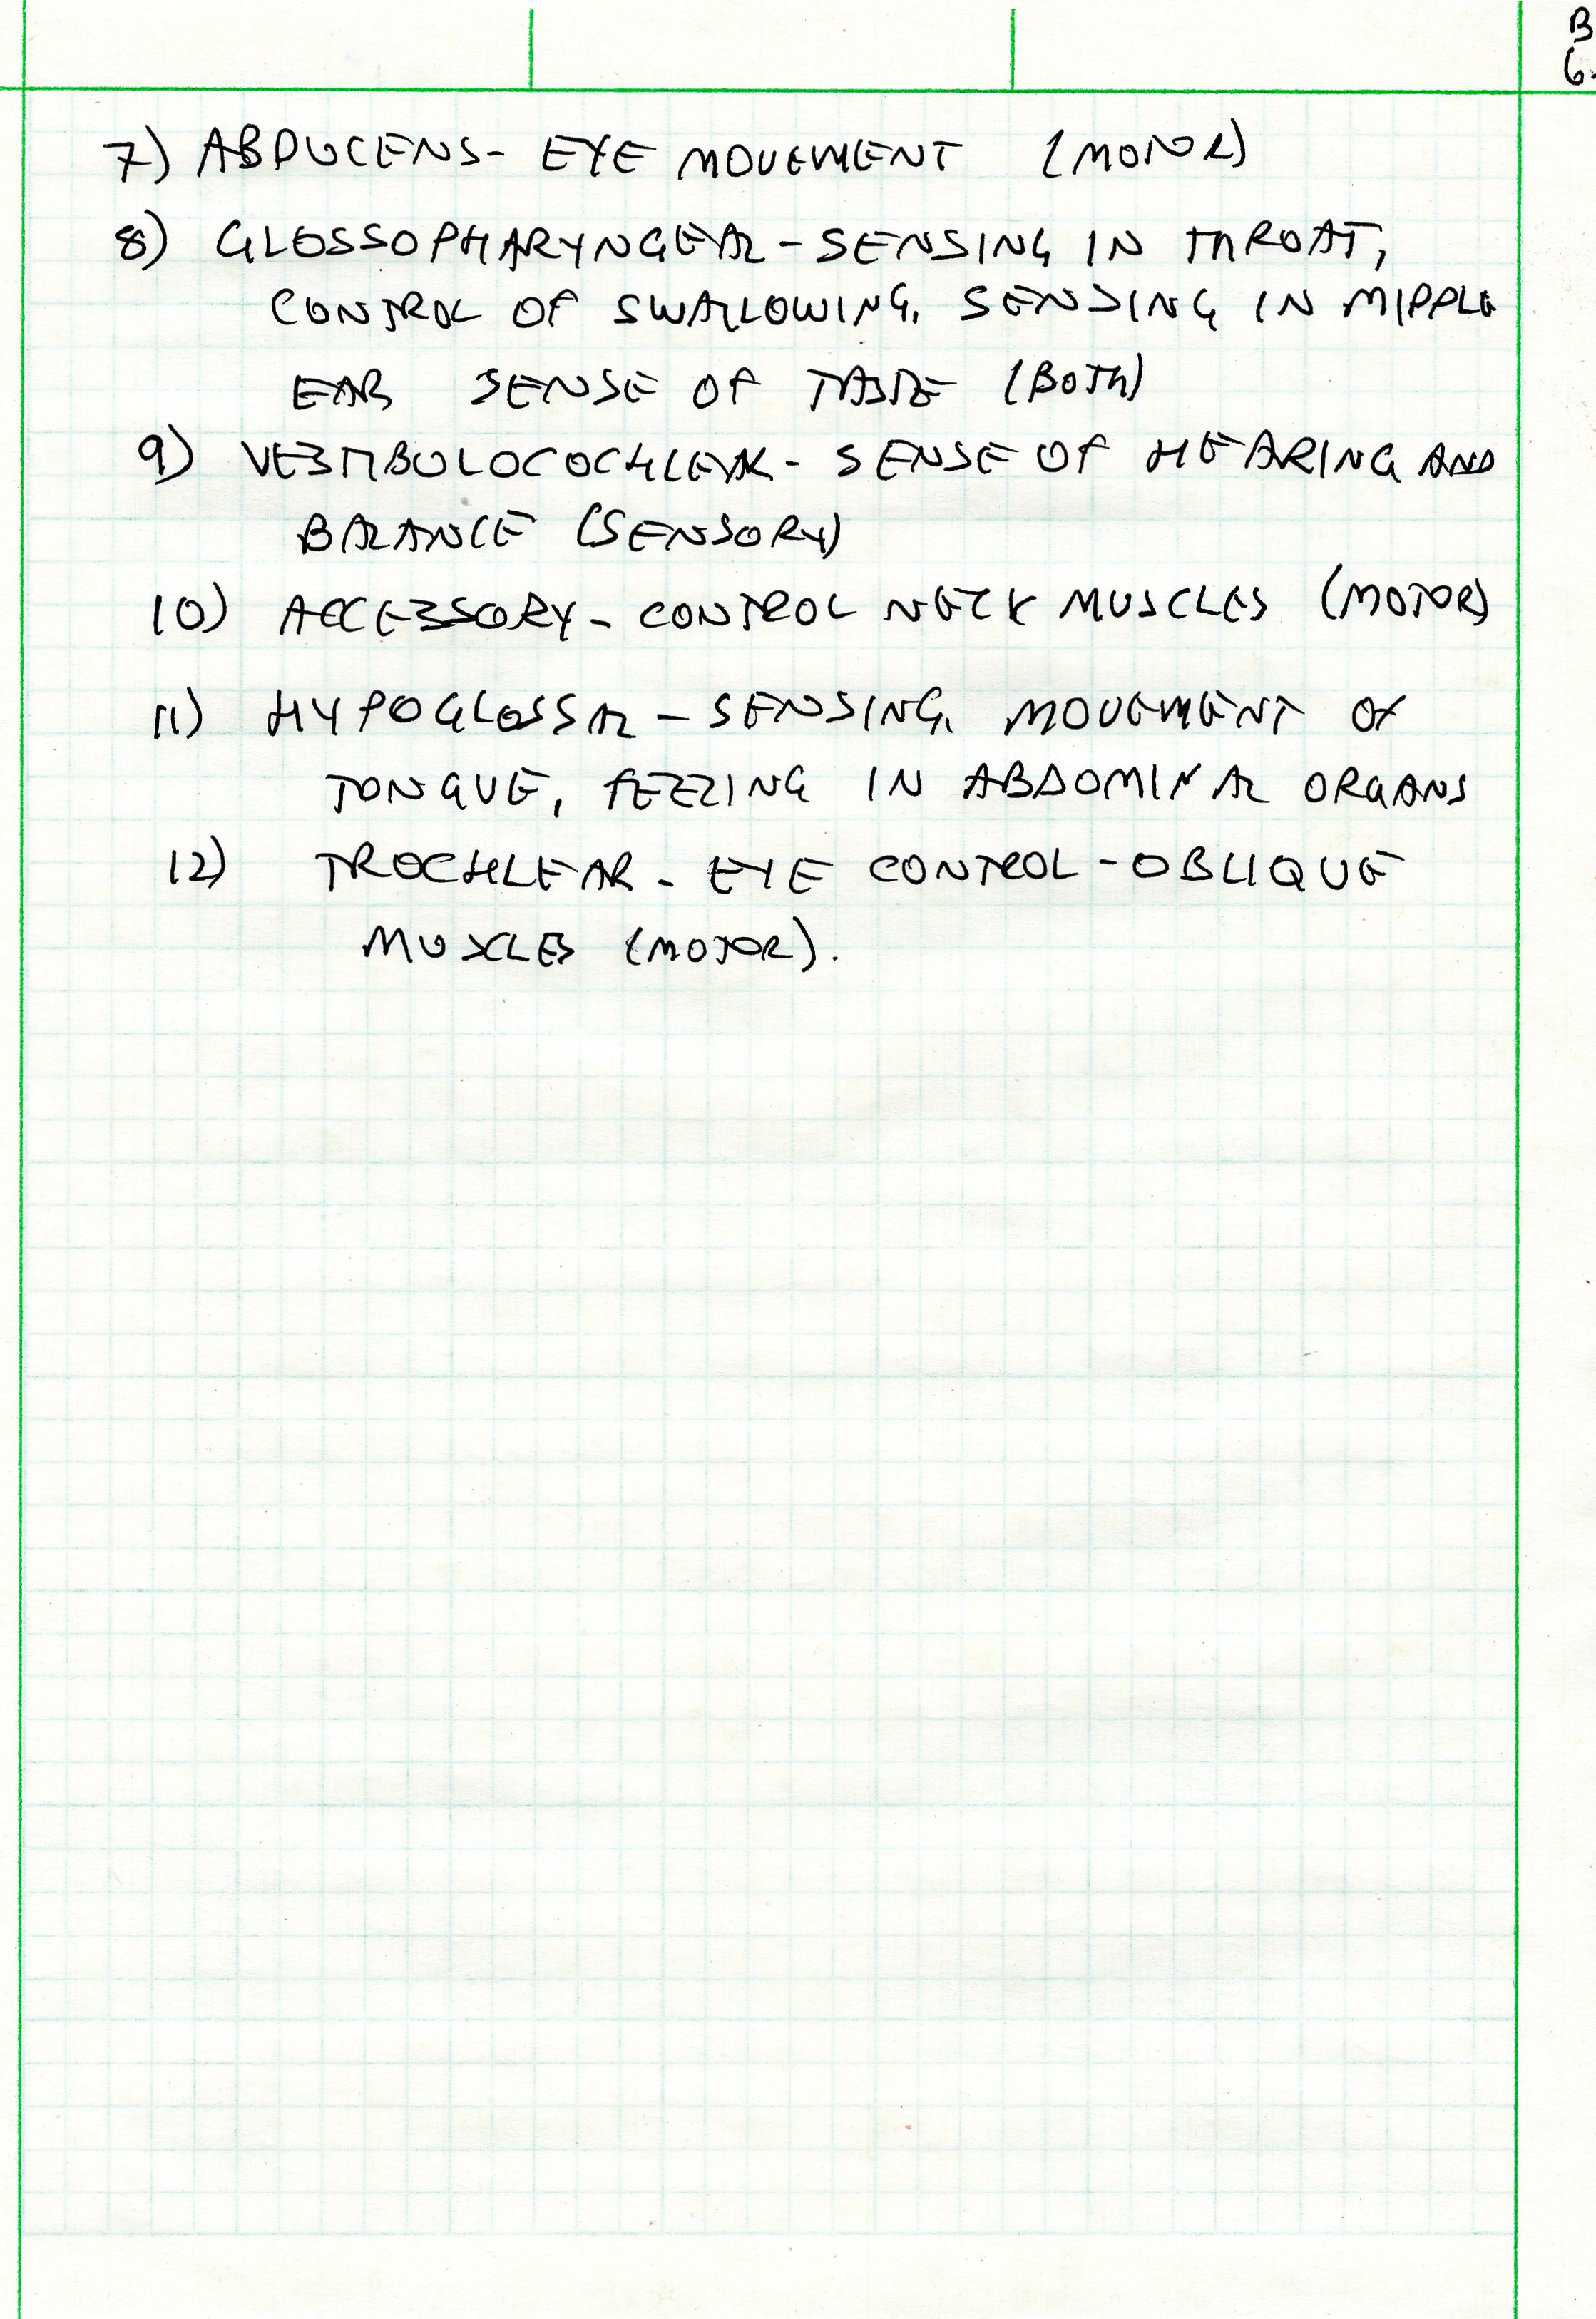 B
6.
7) ABDUCENS- EYE MOVEMENT (MOTOR)
8) GLOSSOPHARYNGEAL - SENSING IN THROAT,
CONTROL OF SWALLOWING, SENSING IN MIDDLE
EAR SENSE OF TASTE (BOTH)
9) VESTIBULOCOCHLEAR - SENSE OF HEARING AND
BALANCE (SENSORY)
10) ACCESSORY - CONTROL NECK MUSCLES (MOTOR)
11) HYPOGLOSSAL - SENSING, MOVEMENT OF
TONGUE, FEELING IN ABDOMINAL ORGANS
12) TROCHLEAR - EYE CONTROL - OBLIQUE
MUSCLES (MOTOR).